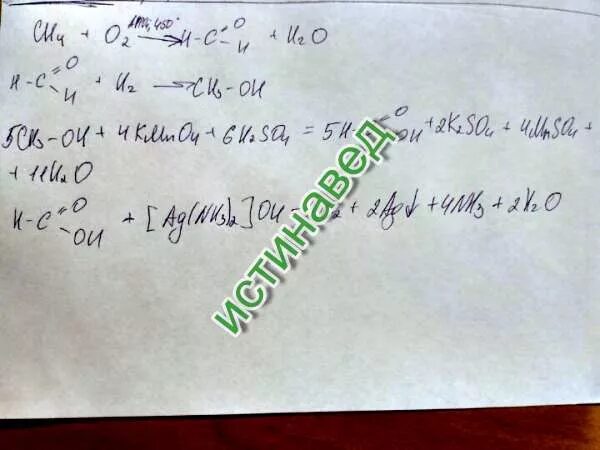 CH₄ + O₂ → H-C(=O)H + H₂O
H-C(=O)H + H₂ → CH₃-OH
5CH₃-OH + 4KMnO₄ + 6H₂SO₄ = 5H OH + 2K₂SO₄ + 4MnSO₄ +
+ 11H₂O
H-C(=O)OH + [Ag(NH₃)₂]OH 2 + 2Ag↓ + 4NH₃ + 2H₂O
истинавед